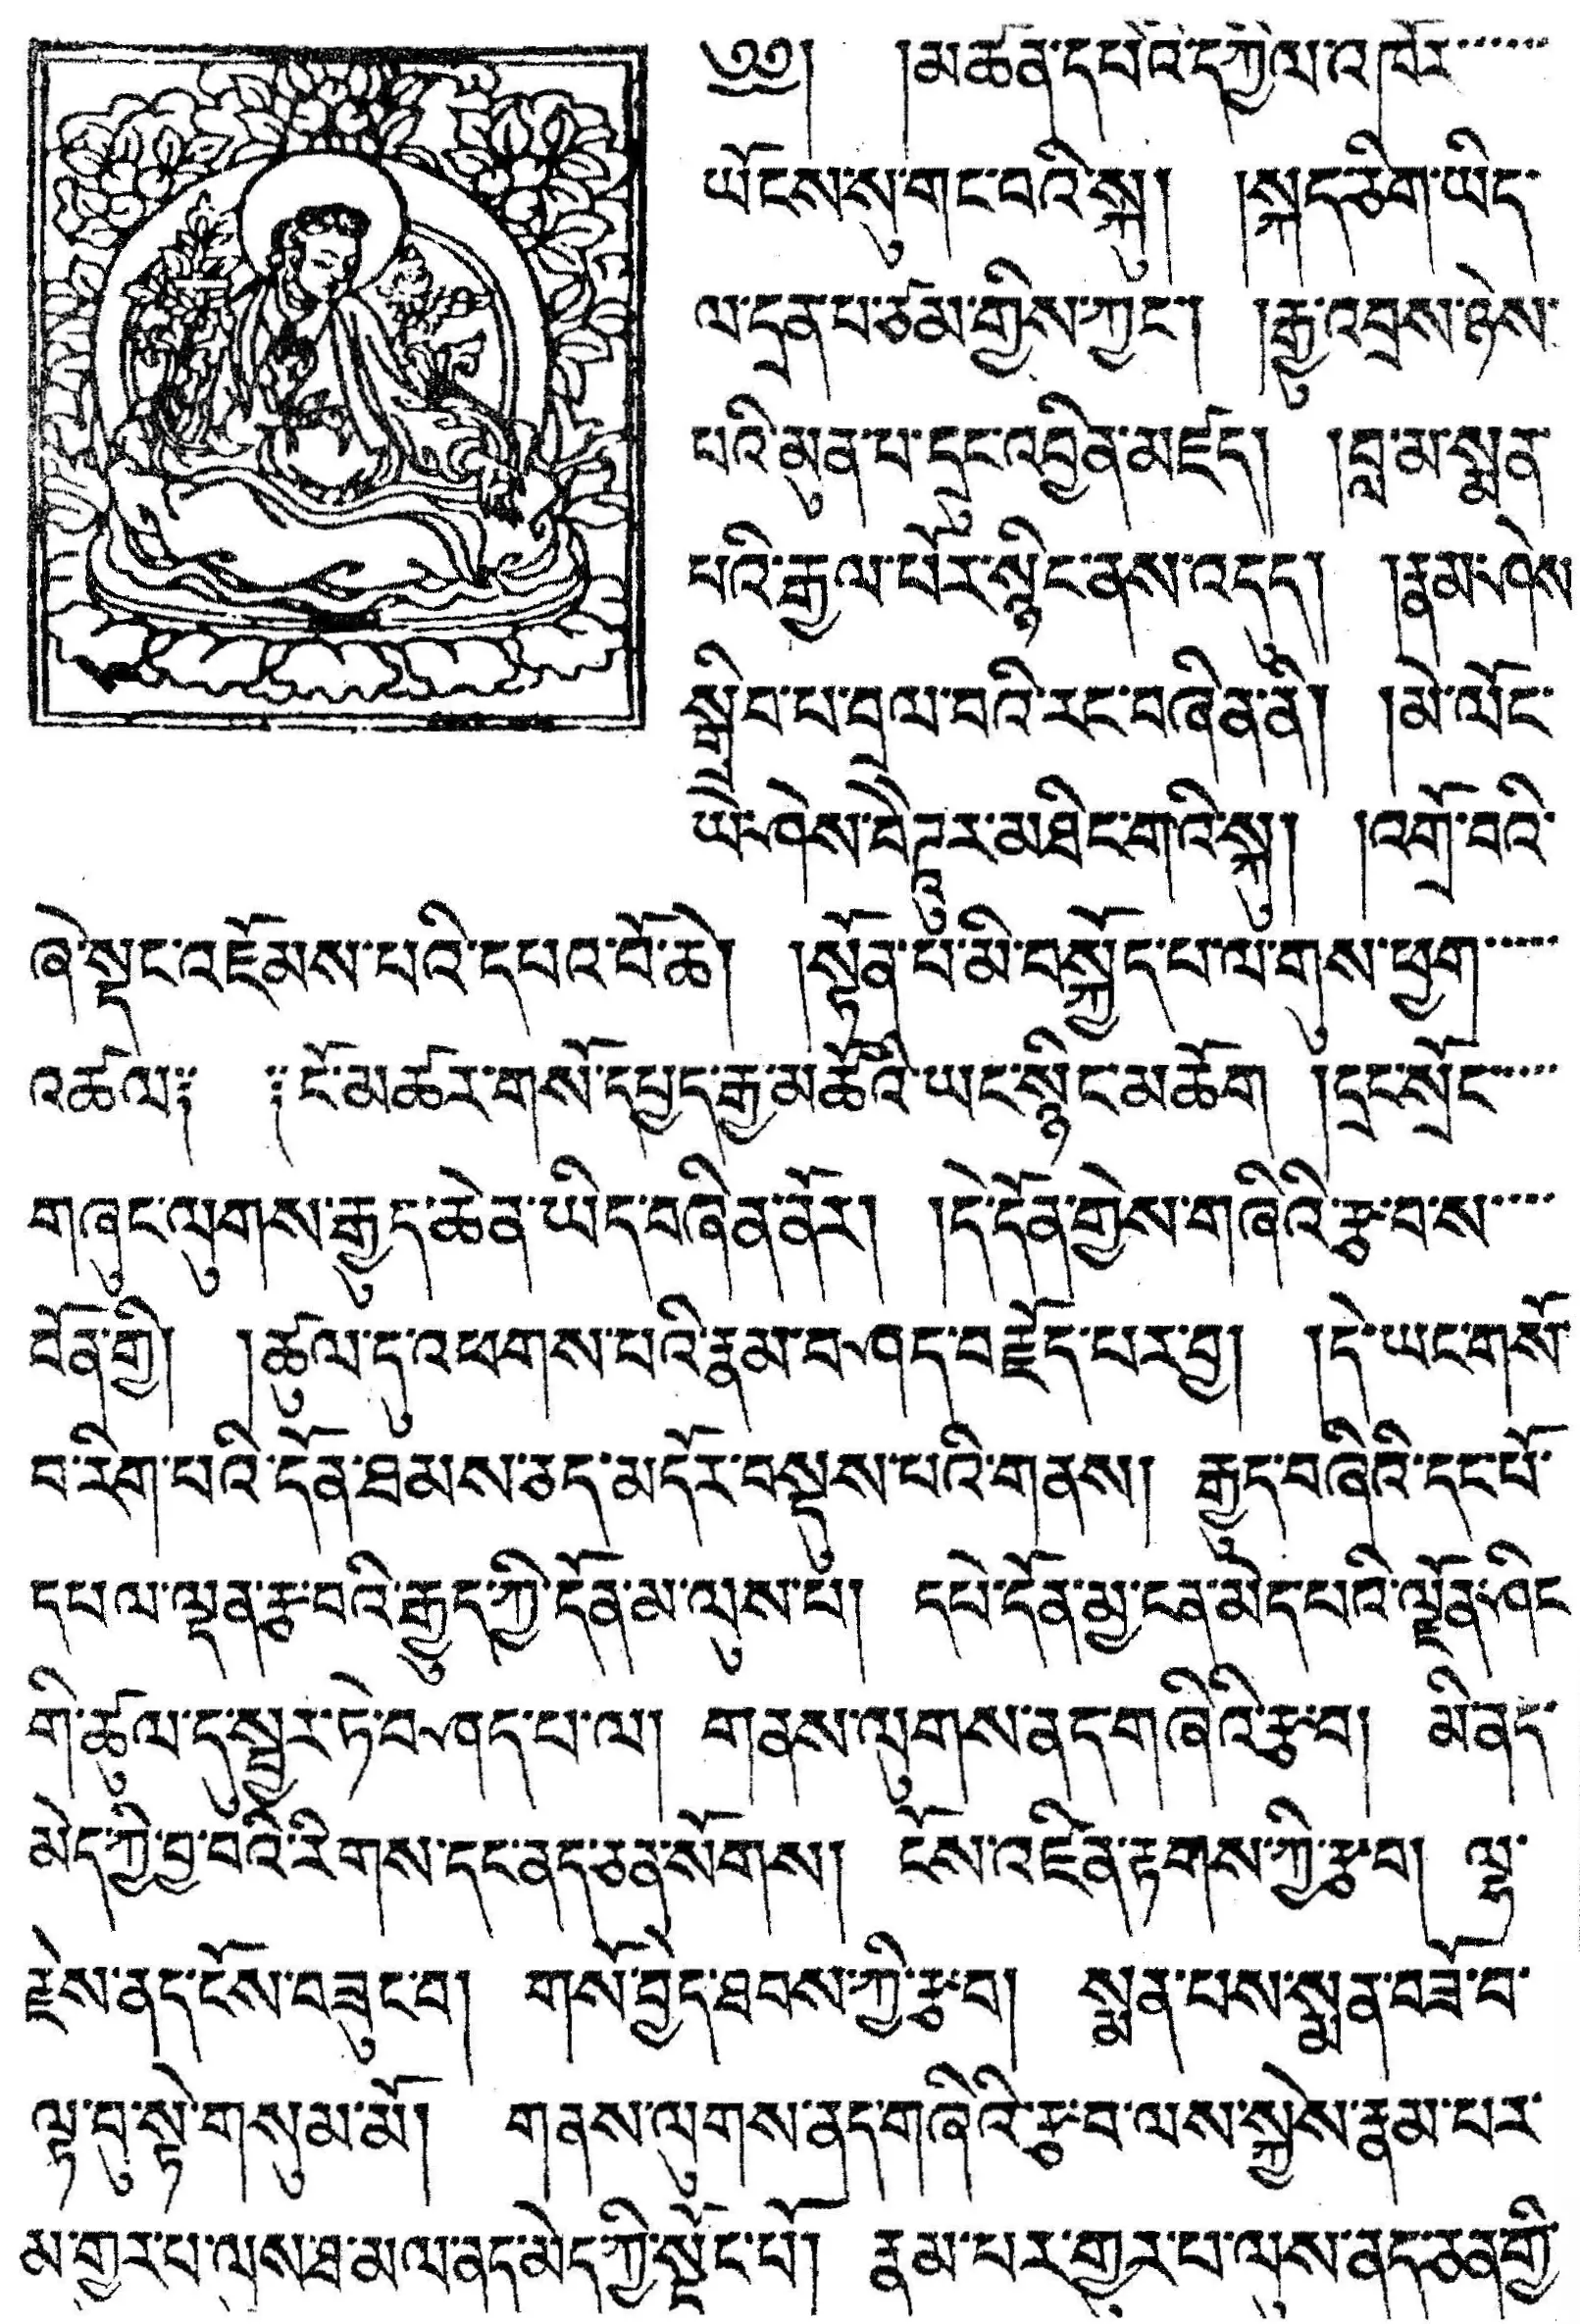 ༄༅། །མཚན་དཔེའི་དཀྱིལ་འཁོར་་་་་་
ཡོངས་སུ་གང་བའི་སྐུ། །སྐད་ཅིག་ཡིད་
ལ་དྲན་པ་ཙམ་གྱིས་ཀྱང་། །རྒྱུ་འབྲས་ཉེས་
པའི་མུན་པ་དྲུང་འབྱིན་མཛད། །བླ་མ་སྨན་
པའི་རྒྱལ་པོར་སྙིང་ནས་འདུད། །རྣམ་ཤེས་
སྒྲིབ་པ་བྲལ་བའི་རང་བཞིན་ནི། །མེ་ལོང་
ཡེ་ཤེས་བཻཌཱུར་མཐིང་གའི་སྐུ། །འགྲོ་བའི་
ཞེ་སྡང་འཇོམས་པའི་དཔའ་བོ་ཆེ། །སྟོན་པ་མི་བསྐྱོད་པ་ལ་གུས་ཕྱག་་་་་
འཚལ༔ ༔ངོ་མཚར་གསོ་དཔྱད་རྒྱ་མཚོའི་ཡང་སྙིང་མཆོག །དྲང་སྲོང་་་་་
གཞུང་ལུགས་རྒྱུད་ཆེན་ཡིད་བཞིན་ནོར། །དེ་དོན་གྱེས་གཞིའི་རྩ་བ་ས་་་་
བོན་གྱི། །ཚུལ་དུ་འཕགས་པའི་རྣམ་བཤད་བརྗོད་པར་བྱ། །དེ་ཡང་གསོ་
བ་རིག་པའི་དོན་ཐམས་ཅད་མདོར་བསྡུས་པའི་གནས། རྒྱུད་བཞིའི་དང་པོ་
དཔལ་ལྡན་རྩ་བའི་རྒྱུད་ཀྱི་དོན་མ་ལུས་པ། དཔེ་དོན་མྱ་ངན་མེད་པའི་ལྗོན་ཤིང་
གི་ཚུལ་དུ་སྦྱར་ཏེ་བཤད་པ་ལ། གནས་ལུགས་ནད་གཞིའི་རྩ་བ། མི་ནད་
མེད་ཀྱི་བྱ་བའི་རིགས་དང་ནད་ཅན་སོགས། ངོས་འཛིན་རྟགས་ཀྱི་རྩ་བ། ལྷ་
རྗེས་ནད་ངོས་བཟུང་བ། གསོ་བྱེད་ཐབས་ཀྱི་རྩ་བ། སྨན་པས་སྨན་བཟོ་བ་
ལྟ་བུ་སྟེ་གསུམ་མོ། གནས་ལུགས་ནད་གཞིའི་རྩ་བ་ལས་སྐྱེས་རྣམ་པར་
མ་གྱུར་པ་ལུས་ཐ་མལ་ནད་མེད་ཀྱི་སྡོང་པོ། རྣམ་པར་གྱུར་པ་ལུས་ནད་ཅན་གྱི་